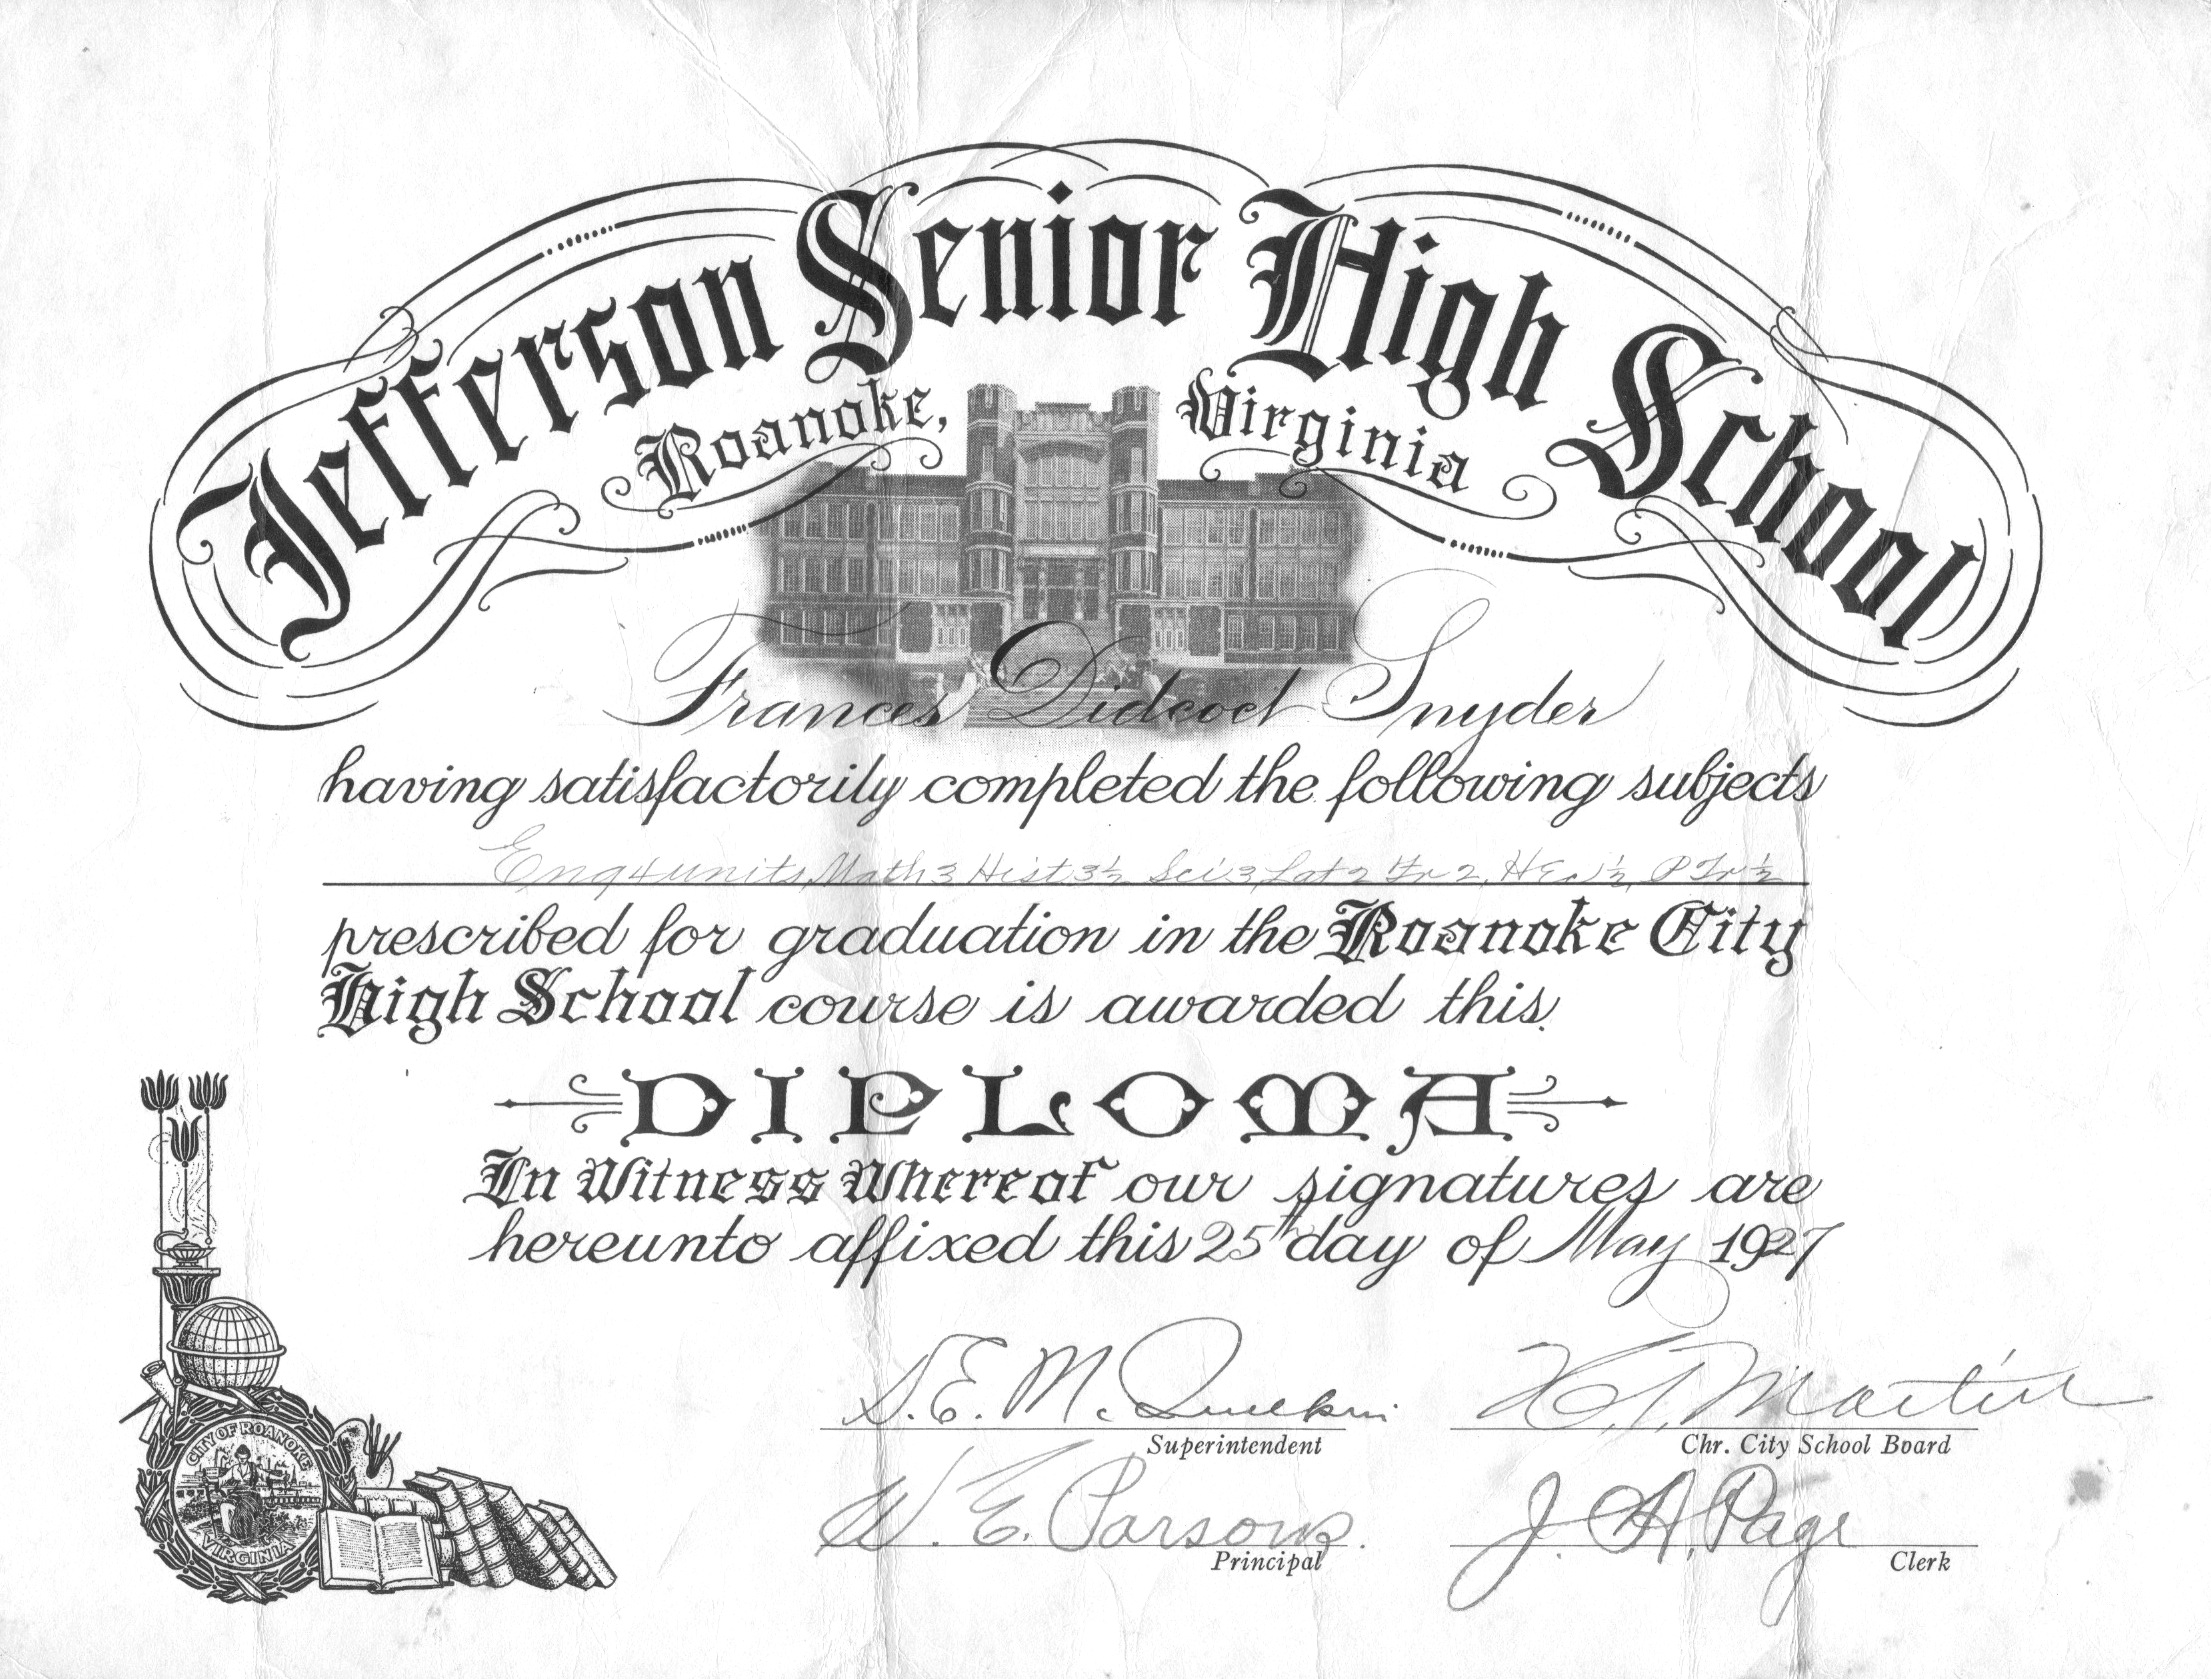 Jefferson Senior High School
Roanoke, Virginia
Frances Didcoct Snyder
having satisfactorily completed the following subjects
Eng 4 units, Math 3 Hist 3½ Sci 3, Lat 2 Fr 2, H Ec ½, P Tr ½
prescribed for graduation in the Roanoke City
High School course is awarded this
DIPLOMA
In Witness Whereof our signatures are
hereunto affixed this 25th day of May 1927
D. E. M.
Superintendent
Martin
Chr. City School Board
W. E. Parsons.
Principal
J. A. Page
Clerk
CITY OF ROANOKE
VIRGINIA